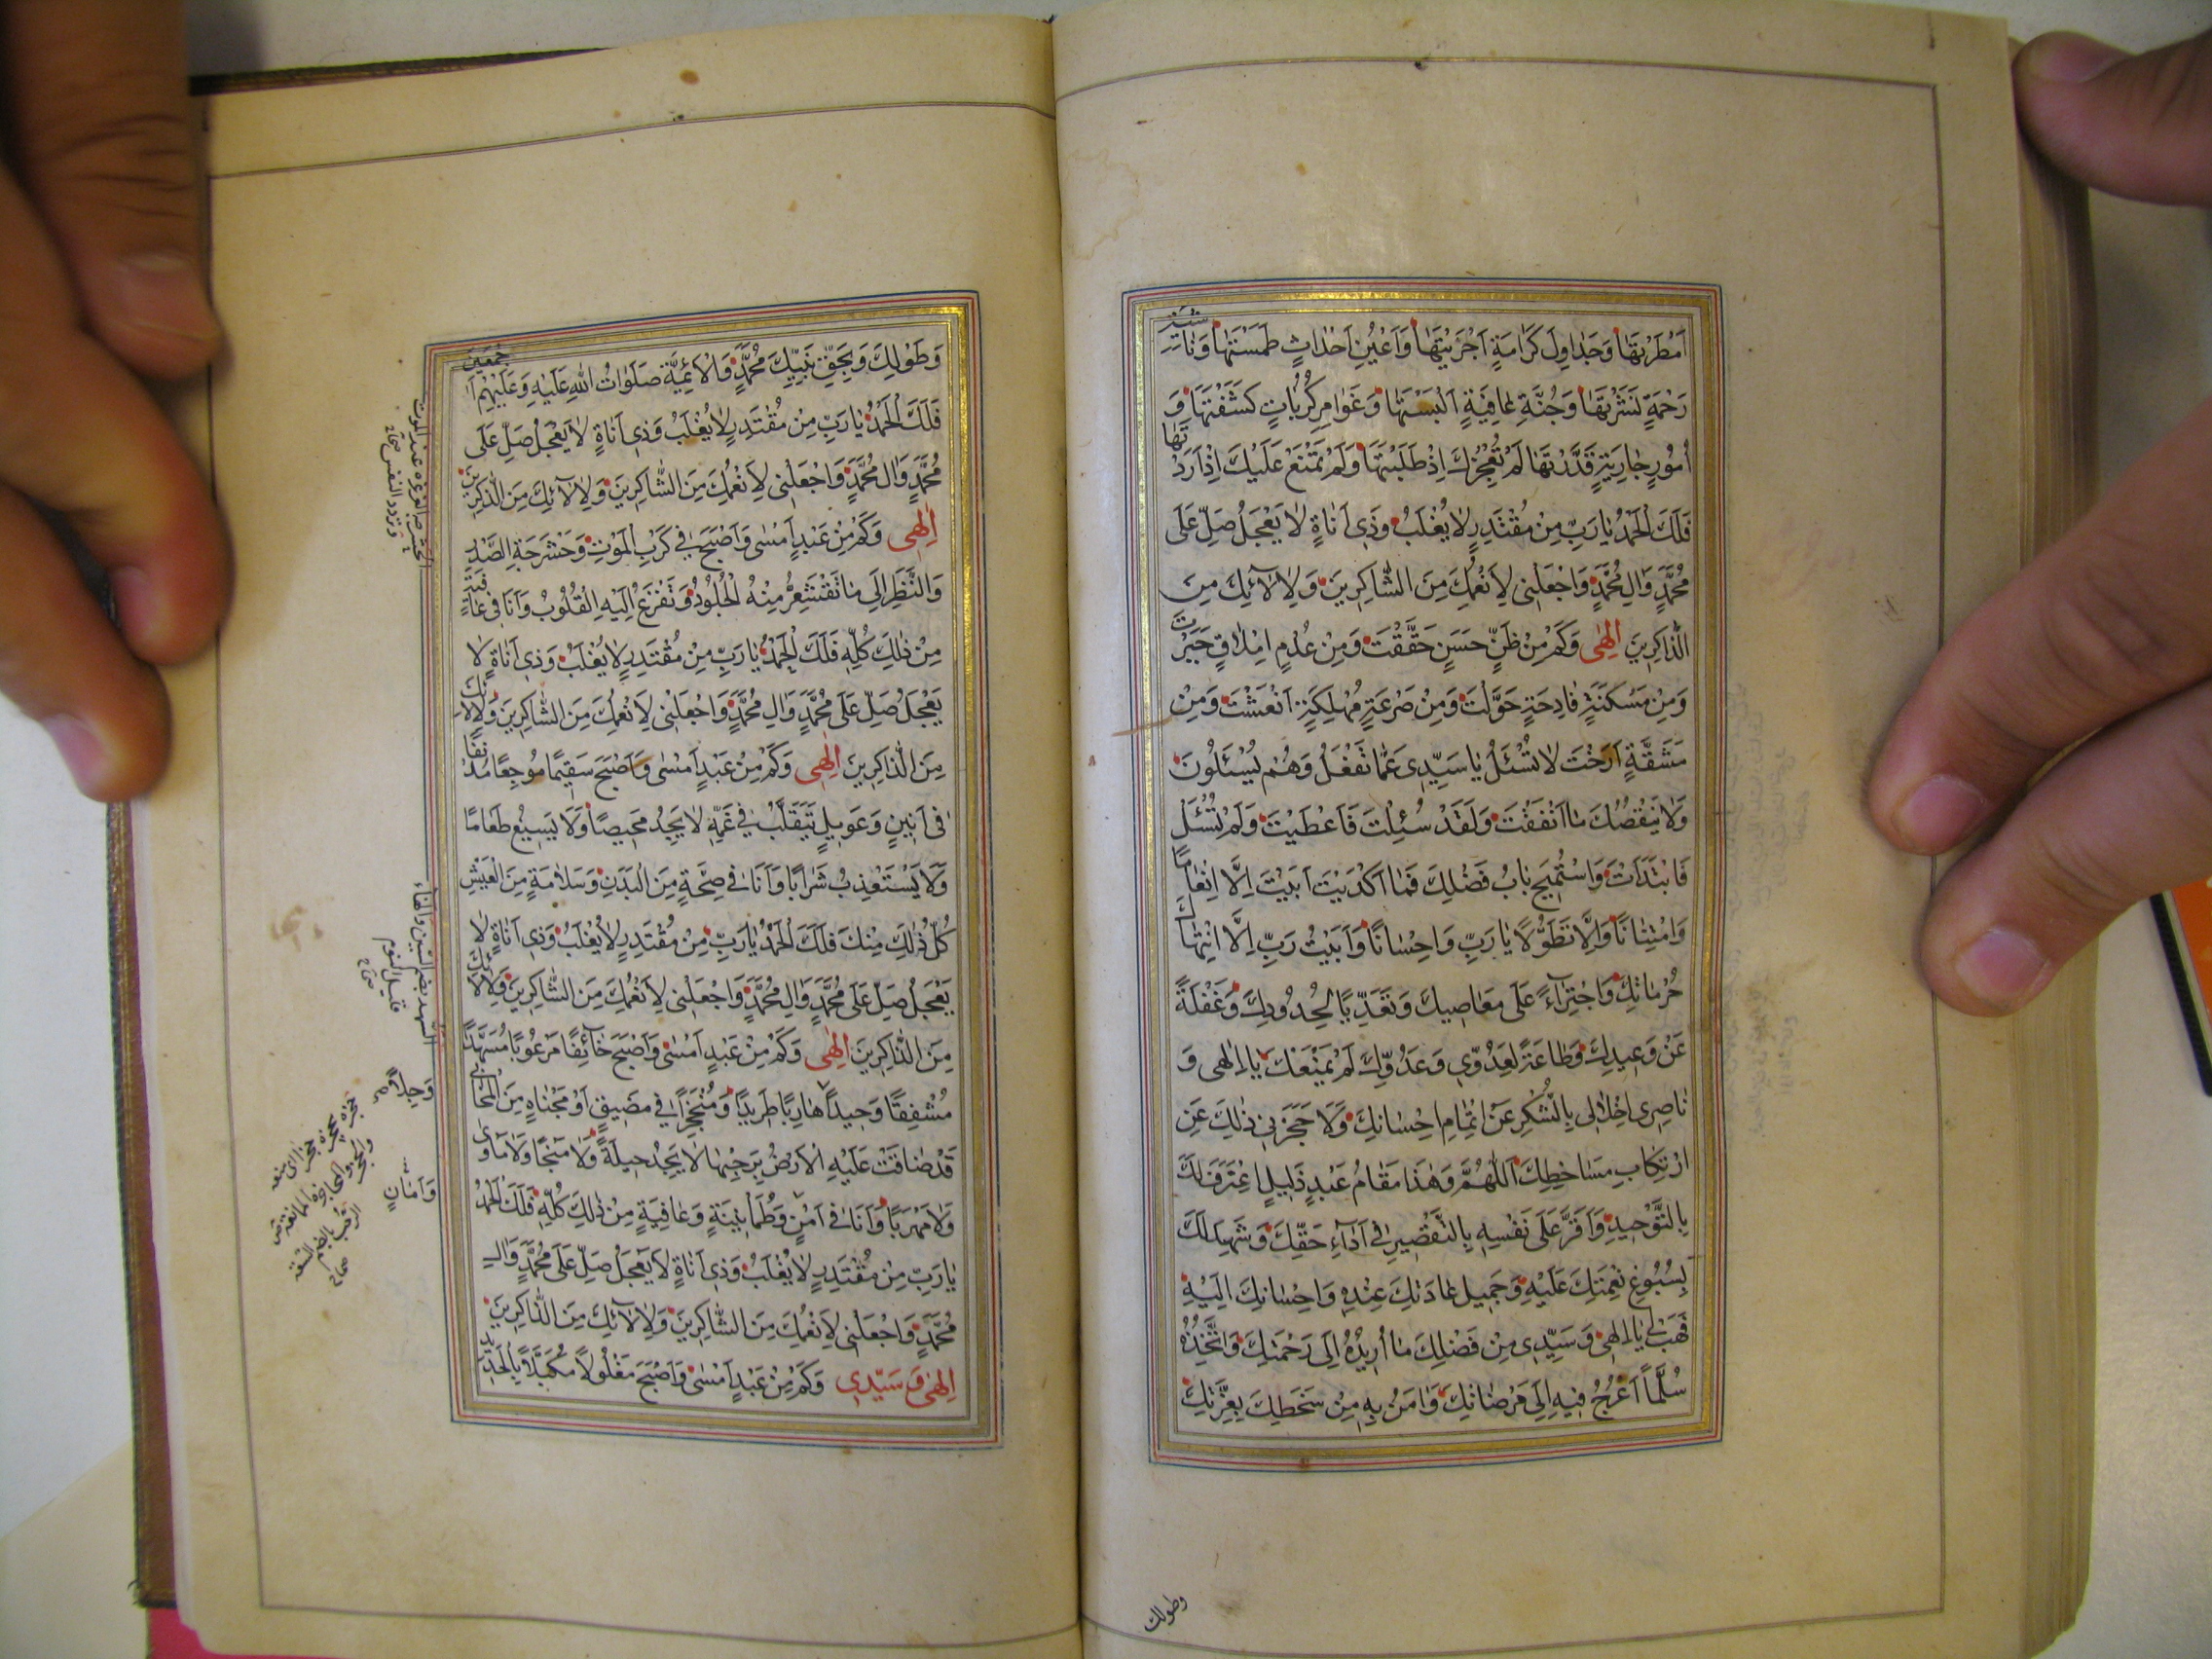 اَمْطَرْتَهٰا وَجَدٰاوِلَ كَرٰامَةٍ اَجْرَيْتَهٰا وَاَعْيُنِ اَحْدٰاثٍ طَمَسْتَهٰا وَنٰاشِئَةِ
رَحْمَةٍ نَشَرْتَهٰا وَجُنَّةِ عٰافِيَةٍ اَلْبَسْتَهٰا وَغَوٰامِرِ كُرُبٰاتٍ كَشَفْتَهٰا وَ
اُمُورٍ جٰارِيَةٍ قَدَّرْتَهٰا لَمْ تُعْجِزْكَ اِذْ طَلَبْتَهٰا وَلَمْ تَمْتَنِعْ عَلَيْكَ اِذْ اَرَدْتَهٰا
فَلَكَ الْحَمْدُ يٰا رَبِّ مِنْ مُقْتَدِرٍ لٰا يُغْلَبُ وَذِي اَنٰاةٍ لٰا يَعْجَلُ صَلِّ عَلَى
مُحَمَّدٍ وَاٰلِ مُحَمَّدٍ وَاجْعَلْنِي لِاَنْعُمِكَ مِنَ الشّٰاكِرِينَ وَلِاٰلٰائِكَ مِنَ
الذّٰاكِرِينَ اِلٰهِي وَكَمْ مِنْ ظَنٍّ حَسَنٍ حَقَّقْتَ وَمِنْ عُدْمِ اِمْلٰاقٍ جَبَرْتَ
وَمِنْ مَسْكَنَةٍ فٰادِحَةٍ حَوَّلْتَ وَمِنْ صَرْعَةٍ مُهْلِكَةٍ اَنْعَشْتَ وَمِنْ
مَشَقَّةٍ اَرَحْتَ لٰا تُسْئَلُ يٰا سَيِّدِي عَمّٰا تَفْعَلُ وَهُمْ يُسْئَلُونَ
وَلٰا يَنْقُصُكَ مٰا اَنْفَقْتَ وَلَقَدْ سُئِلْتَ فَاَعْطَيْتَ وَلَمْ تُسْئَلْ
فَابْتَدَاْتَ وَاسْتُمِيحَ بٰابُ فَضْلِكَ فَمٰا اَكْدَيْتَ اَبَيْتَ اِلَّا اِنْعٰامًا
وَامْتِنٰانًا وَاِلَّا تَطَوُّلًا يٰا رَبِّ وَاِحْسٰانًا وَاَبَيْتُ رَبِّ اِلَّا انْتِهٰاكًا
حُرُمٰاتِكَ وَاجْتِرٰاءً عَلَى مَعٰاصِيكَ وَتَعَدِّيًا لِحُدُودِكَ وَغَفْلَةً
عَنْ وَعِيدِكَ وَطٰاعَةً لِعَدُوِّي وَعَدُوِّكَ لَمْ يَمْنَعْكَ يٰا اِلٰهِي وَ
نٰاصِرِي اِخْلٰالِي بِالشُّكْرِ عَنْ اِتْمٰامِ اِحْسٰانِكَ وَلٰا حَجَزَنِي ذٰلِكَ عَنِ
ارْتِكٰابِ مَسٰاخِطِكَ اَللّٰهُمَّ وَهٰذَا مَقٰامُ عَبْدٍ ذَلِيلٍ اعْتَرَفَ لَكَ
بِالتَّوْحِيدِ وَاَقَرَّ عَلَى نَفْسِهِ بِالتَّقْصِيرِ فِي اَدٰاءِ حَقِّكَ وَشَهِدَ لَكَ
بِسُبُوغِ نِعْمَتِكَ عَلَيْهِ وَجَمِيلِ عٰادَتِكَ عِنْدَهُ وَاِحْسٰانِكَ اِلَيْهِ
فَهَبْ لِي يٰا اِلٰهِي وَسَيِّدِي مِنْ فَضْلِكَ مٰا اُرِيدُهُ اِلَى رَحْمَتِكَ وَاَتَّخِذُهُ
سُلَّمًا اَعْرُجُ فِيهِ اِلَى مَرْضٰاتِكَ وَاٰمَنُ بِهِ مِنْ سَخَطِكَ بِعِزَّتِكَ
وطولك
وَطَوْلِكَ وَبِحَقِّ نَبِيِّكَ مُحَمَّدٍ وَالْاَئِمَّةِ صَلَوٰاتُ اللّٰهِ عَلَيْهِ وَعَلَيْهِمْ اَجْمَعِينَ
فَلَكَ الْحَمْدُ يٰا رَبِّ مِنْ مُقْتَدِرٍ لٰا يُغْلَبُ وَذِي اَنٰاةٍ لٰا يَعْجَلُ صَلِّ عَلَى
مُحَمَّدٍ وَاٰلِ مُحَمَّدٍ وَاجْعَلْنِي لِاَنْعُمِكَ مِنَ الشّٰاكِرِينَ وَلِاٰلٰائِكَ مِنَ الذّٰاكِرِينَ
اِلٰهِي وَكَمْ مِنْ عَبْدٍ اَمْسٰى وَاَصْبَحَ فِي كَرْبِ الْمَوْتِ وَحَشْرَجَةِ الصَّدْرِ
وَالنَّظَرِ اِلَى مٰا تَقْشَعِرُّ مِنْهُ الْجُلُودُ وَتَفْزَعُ اِلَيْهِ الْقُلُوبُ وَاَنَا فِي عٰافِيَةٍ
مِنْ ذٰلِكَ كُلِّهِ فَلَكَ الْحَمْدُ يٰا رَبِّ مِنْ مُقْتَدِرٍ لٰا يُغْلَبُ وَذِي اَنٰاةٍ لٰا
يَعْجَلُ صَلِّ عَلَى مُحَمَّدٍ وَاٰلِ مُحَمَّدٍ وَاجْعَلْنِي لِاَنْعُمِكَ مِنَ الشّٰاكِرِينَ وَلِاٰلٰائِكَ
مِنَ الذّٰاكِرِينَ اِلٰهِي وَكَمْ مِنْ عَبْدٍ اَمْسٰى وَاَصْبَحَ سَقِيمًا مُوجِعًا مُدْنِفًا
فِي اَنِينٍ وَعَوِيلٍ يَتَقَلَّبُ فِي غَمِّهِ لٰا يَجِدُ مَحِيصًا وَلٰا يُسِيغُ طَعٰامًا
وَلٰا يَسْتَعْذِبُ شَرٰابًا وَاَنَا فِي صِحَّةٍ مِنَ الْبَدَنِ وَسَلٰامَةٍ مِنَ الْعَيْشِ
كُلُّ ذٰلِكَ مِنْكَ فَلَكَ الْحَمْدُ يٰا رَبِّ مِنْ مُقْتَدِرٍ لٰا يُغْلَبُ وَذِي اَنٰاةٍ لٰا
يَعْجَلُ صَلِّ عَلَى مُحَمَّدٍ وَاٰلِ مُحَمَّدٍ وَاجْعَلْنِي لِاَنْعُمِكَ مِنَ الشّٰاكِرِينَ وَلِاٰلٰائِكَ
مِنَ الذّٰاكِرِينَ اِلٰهِي وَكَمْ مِنْ عَبْدٍ اَمْسٰى وَاَصْبَحَ خٰائِفًا مَرْعُوبًا مُسَهَّدًا
مُشْفِقًا وَحِيدًا هٰارِبًا طَرِيدًا وَمُنْحَجِزًا فِي مَضِيقٍ اَوْ مَخْبٰاةٍ مِنَ الْمَخٰابِي
قَدْ ضٰاقَتْ عَلَيْهِ الْاَرْضُ بِرُحْبِهٰا لٰا يَجِدُ حِيلَةً وَلٰا مَنْجًا وَلٰا مَاْوًى
وَلٰا مَهْرَبًا وَاَنَا فِي اَمْنٍ وَطُمَاْنِينَةٍ وَعٰافِيَةٍ مِنْ ذٰلِكَ كُلِّهِ فَلَكَ الْحَمْدُ
يٰا رَبِّ مِنْ مُقْتَدِرٍ لٰا يُغْلَبُ وَذِي اَنٰاةٍ لٰا يَعْجَلُ صَلِّ عَلَى مُحَمَّدٍ وَاٰلِ
مُحَمَّدٍ وَاجْعَلْنِي لِاَنْعُمِكَ مِنَ الشّٰاكِرِينَ وَلِاٰلٰائِكَ مِنَ الذّٰاكِرِينَ
اِلٰهِي وَسَيِّدِي وَكَمْ مِنْ عَبْدٍ اَمْسٰى وَاَصْبَحَ مَغْلُولًا مُكَبَّلًا بِالْحَدِيدِ
الحشرجة الغرغرة عند الموت
وتردد النفس صحاح
السهد بضم السين والهاء
قليل النوم
صحاح
وَجِلًا
وَاَمٰانٍ
الرحب بالضم السعة
صحاح